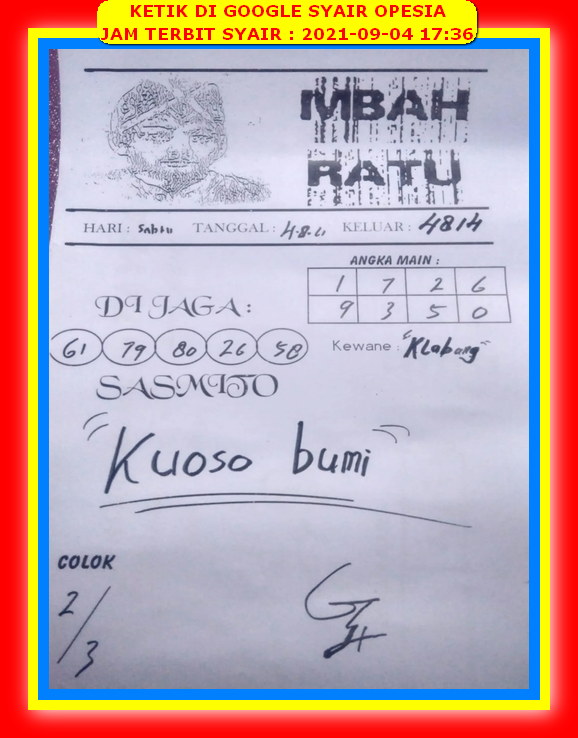 KETIK DI GOOGLE SYAIR OPESIA
JAM TERBIT SYAIR : 2021-09-04 17:36
MBAH
RATU
HARI : Sabtu TANGGAL : KELUAR : 4814
ANGKA MAIN :
1 7 2 6
9 3 5 0
DI JAGA :
61 79 80 26 58
Kewane : "Klabang"
SASMITO
"Kuoso bumi"
COLOK
2/3